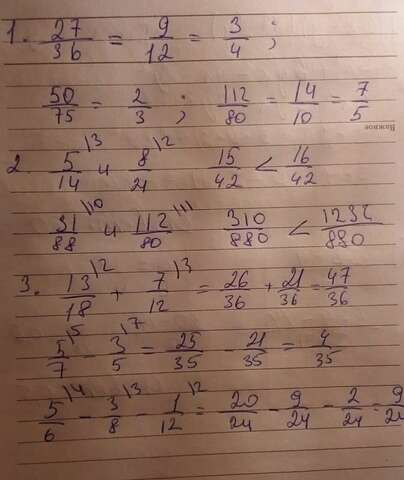 1. 27/36 = 9/12 = 3/4 ;
50/75 = 2/3 ; 112/80 = 14/10 = 7/5
Важное
2. 5/14 \3 и 8/21 \2 15/42 < 16/42
31/88 \10 и 112/80 \11 310/880 < 1232/880
3. 13/18 \2 + 7/12 \3 = 26/36 + 21/36 = 47/36
5/7 \5 - 3/5 \7 = 25/35 - 21/35 = 4/35
5/6 \4 - 3/8 \3 - 1/12 \2 = 20/24 - 9/24 - 2/24 = 9/24